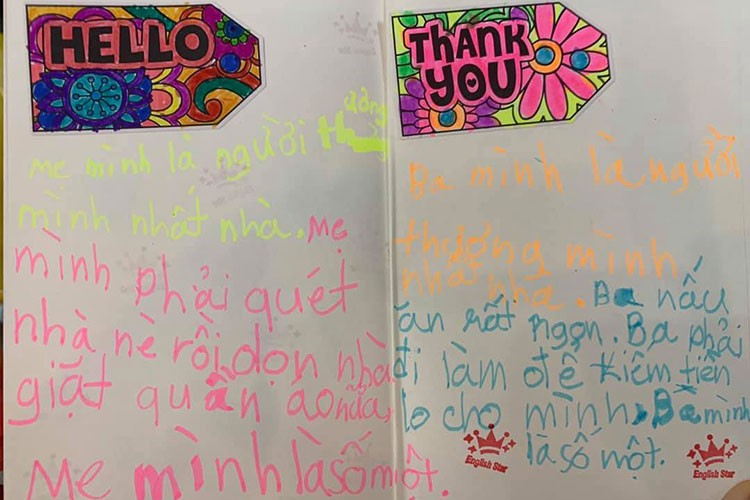 HELLO
ương
Mẹ mình là người th
mình nhất nhà. Mẹ
mình phải quét
nhà nè rồi dọn nhà
giặt quần áo nữa,
Mẹ mình là số một.
THANK
YOU
Ba mình là người
thương mình
nhất nhà. Ba nấu
ăn rất ngon. Ba phải
đi làm để kiếm tiền
lo cho mình, Ba mình
là số một.
English Star
English Star